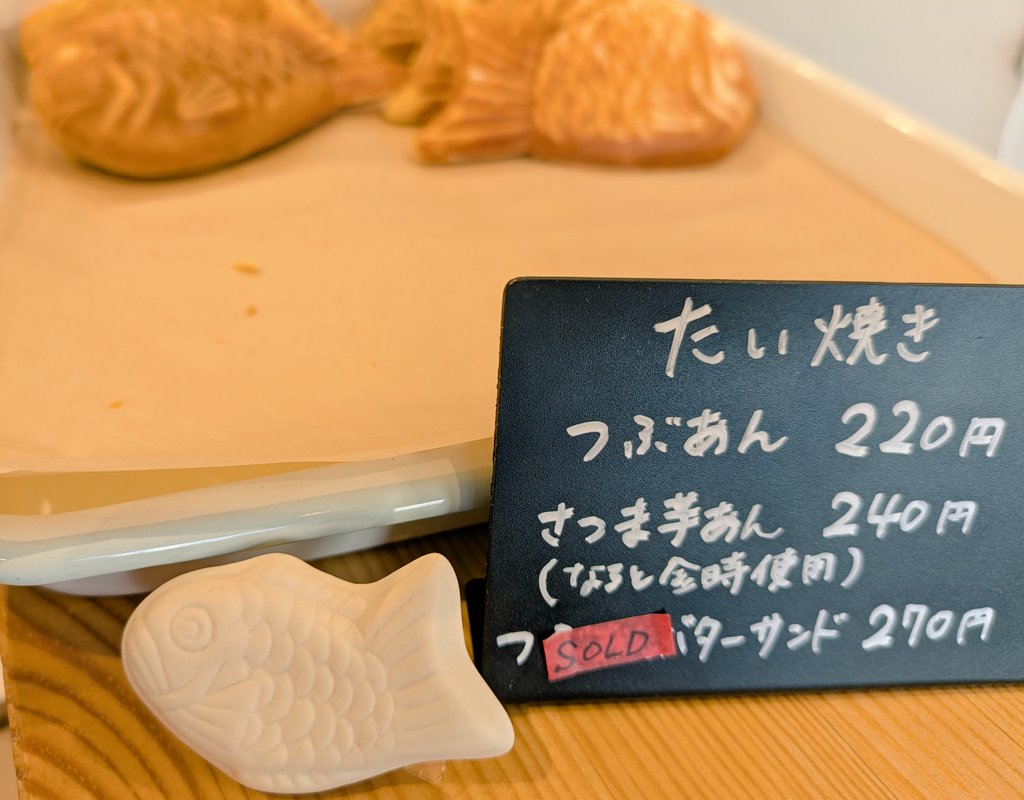 たい焼き
つぶあん 220円
さつま芋あん 240円
(なると金時使用)
つ SOLD バターサンド 270円